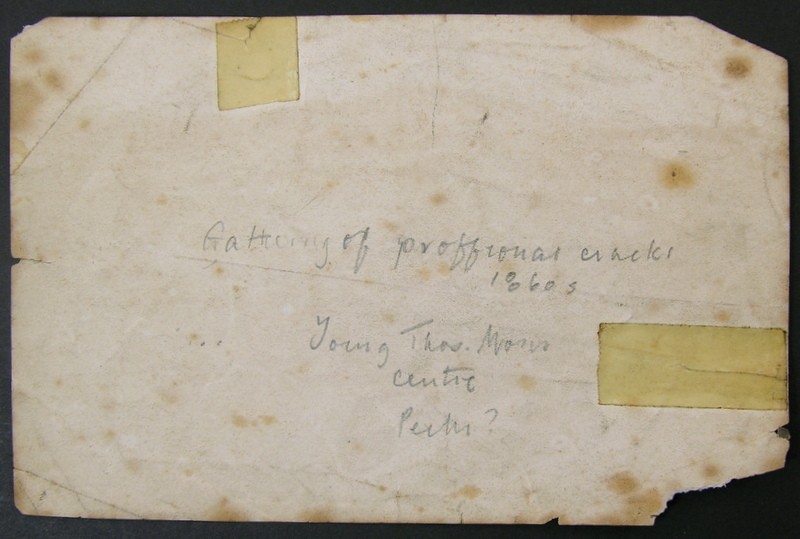 Gathering of proffional cracks
1860s
Young Thos. Morris
centre
Perth?